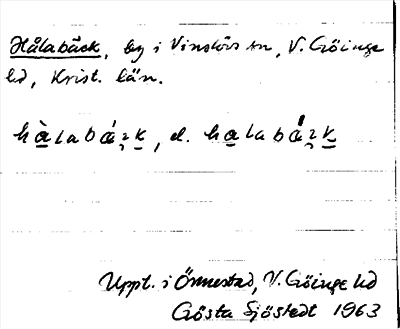 Hålabäck, by i Vinslövs sn, V. Göinge
hd, Krist. län.
hàlabáʒk, el. halabáʒk
Uppt. i Önnestad, V. Göinge hd
Gösta Sjöstedt 1963